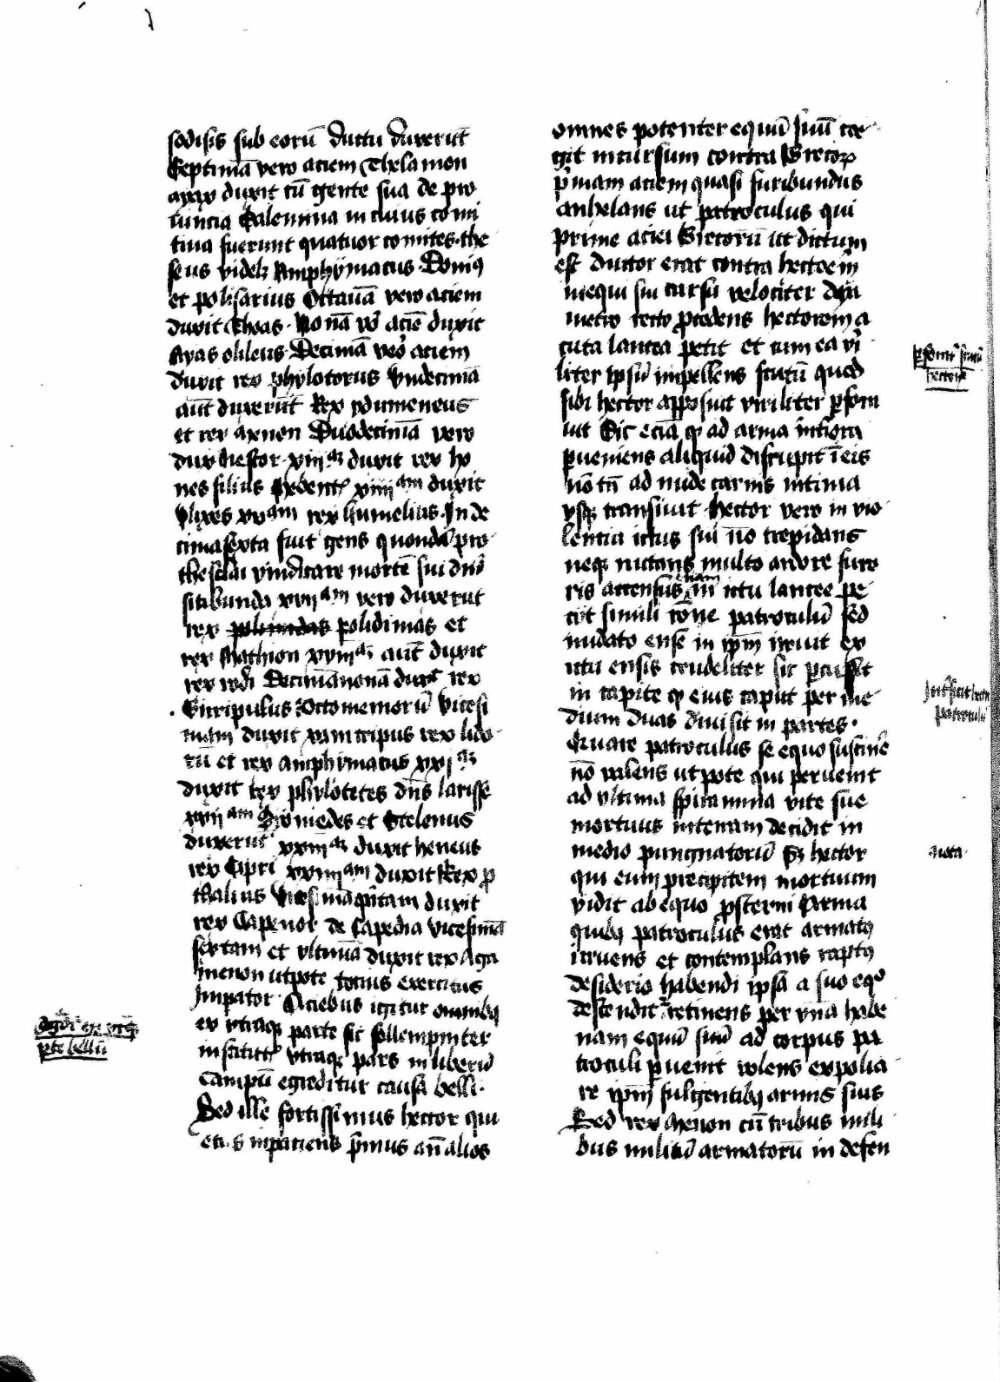 sodisis sub eorū ductu duxerūt
Septimā vero aciem Thelamon
ayax duxit cū gente sua de pro
uincia Salemina in cuius comi
tiua fuerunt quatuor comites the
seus videlz Amphimacus Domiꝰ
et polisarius Octauā vero aciem
duxit Thoas Nonā vͦ aciē duxit
Ayax oileus Decimā veͦo aciem
duxit rex phylotorus Vndecimā
aut̄ duxerūt Rex ydumeneus
et rex axenon Duodecimā vero
dux Nestor xiijam duxit rex ho
nes filius xiiijam duxit
Vlixes xvam rex humelius In de
cima sexta fuit gens quondā pro
theselai vindicare mortē sui dn̄i
sitibunda xvijam vero duxerūt
rex polidimas et
rex Mathion xviijam aut̄ duxit
rex rodi Decimānonā duxit rex
Euripulus Ottomenorū Vicesi
mam duxit xantripus rex lido
rū et rex amphimacus xxjam
duxit rex phylotetes dn̄s larisse
xxijam Dyomedes et Stelenus
duxerūt xxiijam duxit heneus
rex Cipri xxiiijam duxit Rex p̱
thalius Vicesimāqūtam duxit
rex Capenor de Capedia vicesimā
sextam et vltimā duxit rex Aga
menon utpote totius exercitus
Imp̱ator Aciebus igitur omnibꝫ
ex vtraqꝫ parte sic sollempniter
institutis vtraqꝫ pars in liberū
campū egreditur causa belli
Sed ille fortissimus hector qui
impatiens p̄mus an̄ alios
bellū
omnes potenter equū suū coe
git in cursum contra Grecoꝝ
p̄mam aciem quasi furibundus
anhelans ut patroculus qui
prime aciei Grecorū ut dictum
est ductor erat contra hectoreȳm
in equi sui cursu velociter
metro recto p̱cedens hectorem a
cuta lancea petit et eum ea vi
liter ip̄sū impellens scutū quod
sibi hector apposuit viriliter p̱fora
uit Sic eciā qꝫ ad arma inf̄iora
p̱ueniens aliquid disrupit ī eis
nō tn̄ ad nude carnis intima
vsqꝫ transiuit hector vero in vio
lentia ictus sui nō trepidans
neqꝫ nutans multo ardore furo
ris accensus nā ictu lancee pe
cijt simili rōne patroculū sed
nudato ense in ip̄m irruit ex
ictu ensis crudeliter sic p̱cussit
in capite qꝫ eius caput per me
dium duas diuisit in partes
Quare patroculus se equo sustinē
nō valens utpote qui peruenit
ad vltima spiramina vite sue
mortuus in terram decidit in
medio pungnatorū Sꝫ hector
qui eum precipitem mortuum
vidit ab equo p̱sterni Arma
quibꝫ patroculus erat armatꝰ
irruens et contemplans raptꝰ
desiderio habendi ip̄sa a suo eqͦ
descendit retinens per vnā habe
nam equū suū ad corpus pa
troculi p̱uenit volens expolia
re ip̄m fulgentibꝫ armis suis
Sed rex Menon cū tribus mili
bus militū armatorū in defen
hectoris
patroculi
nota